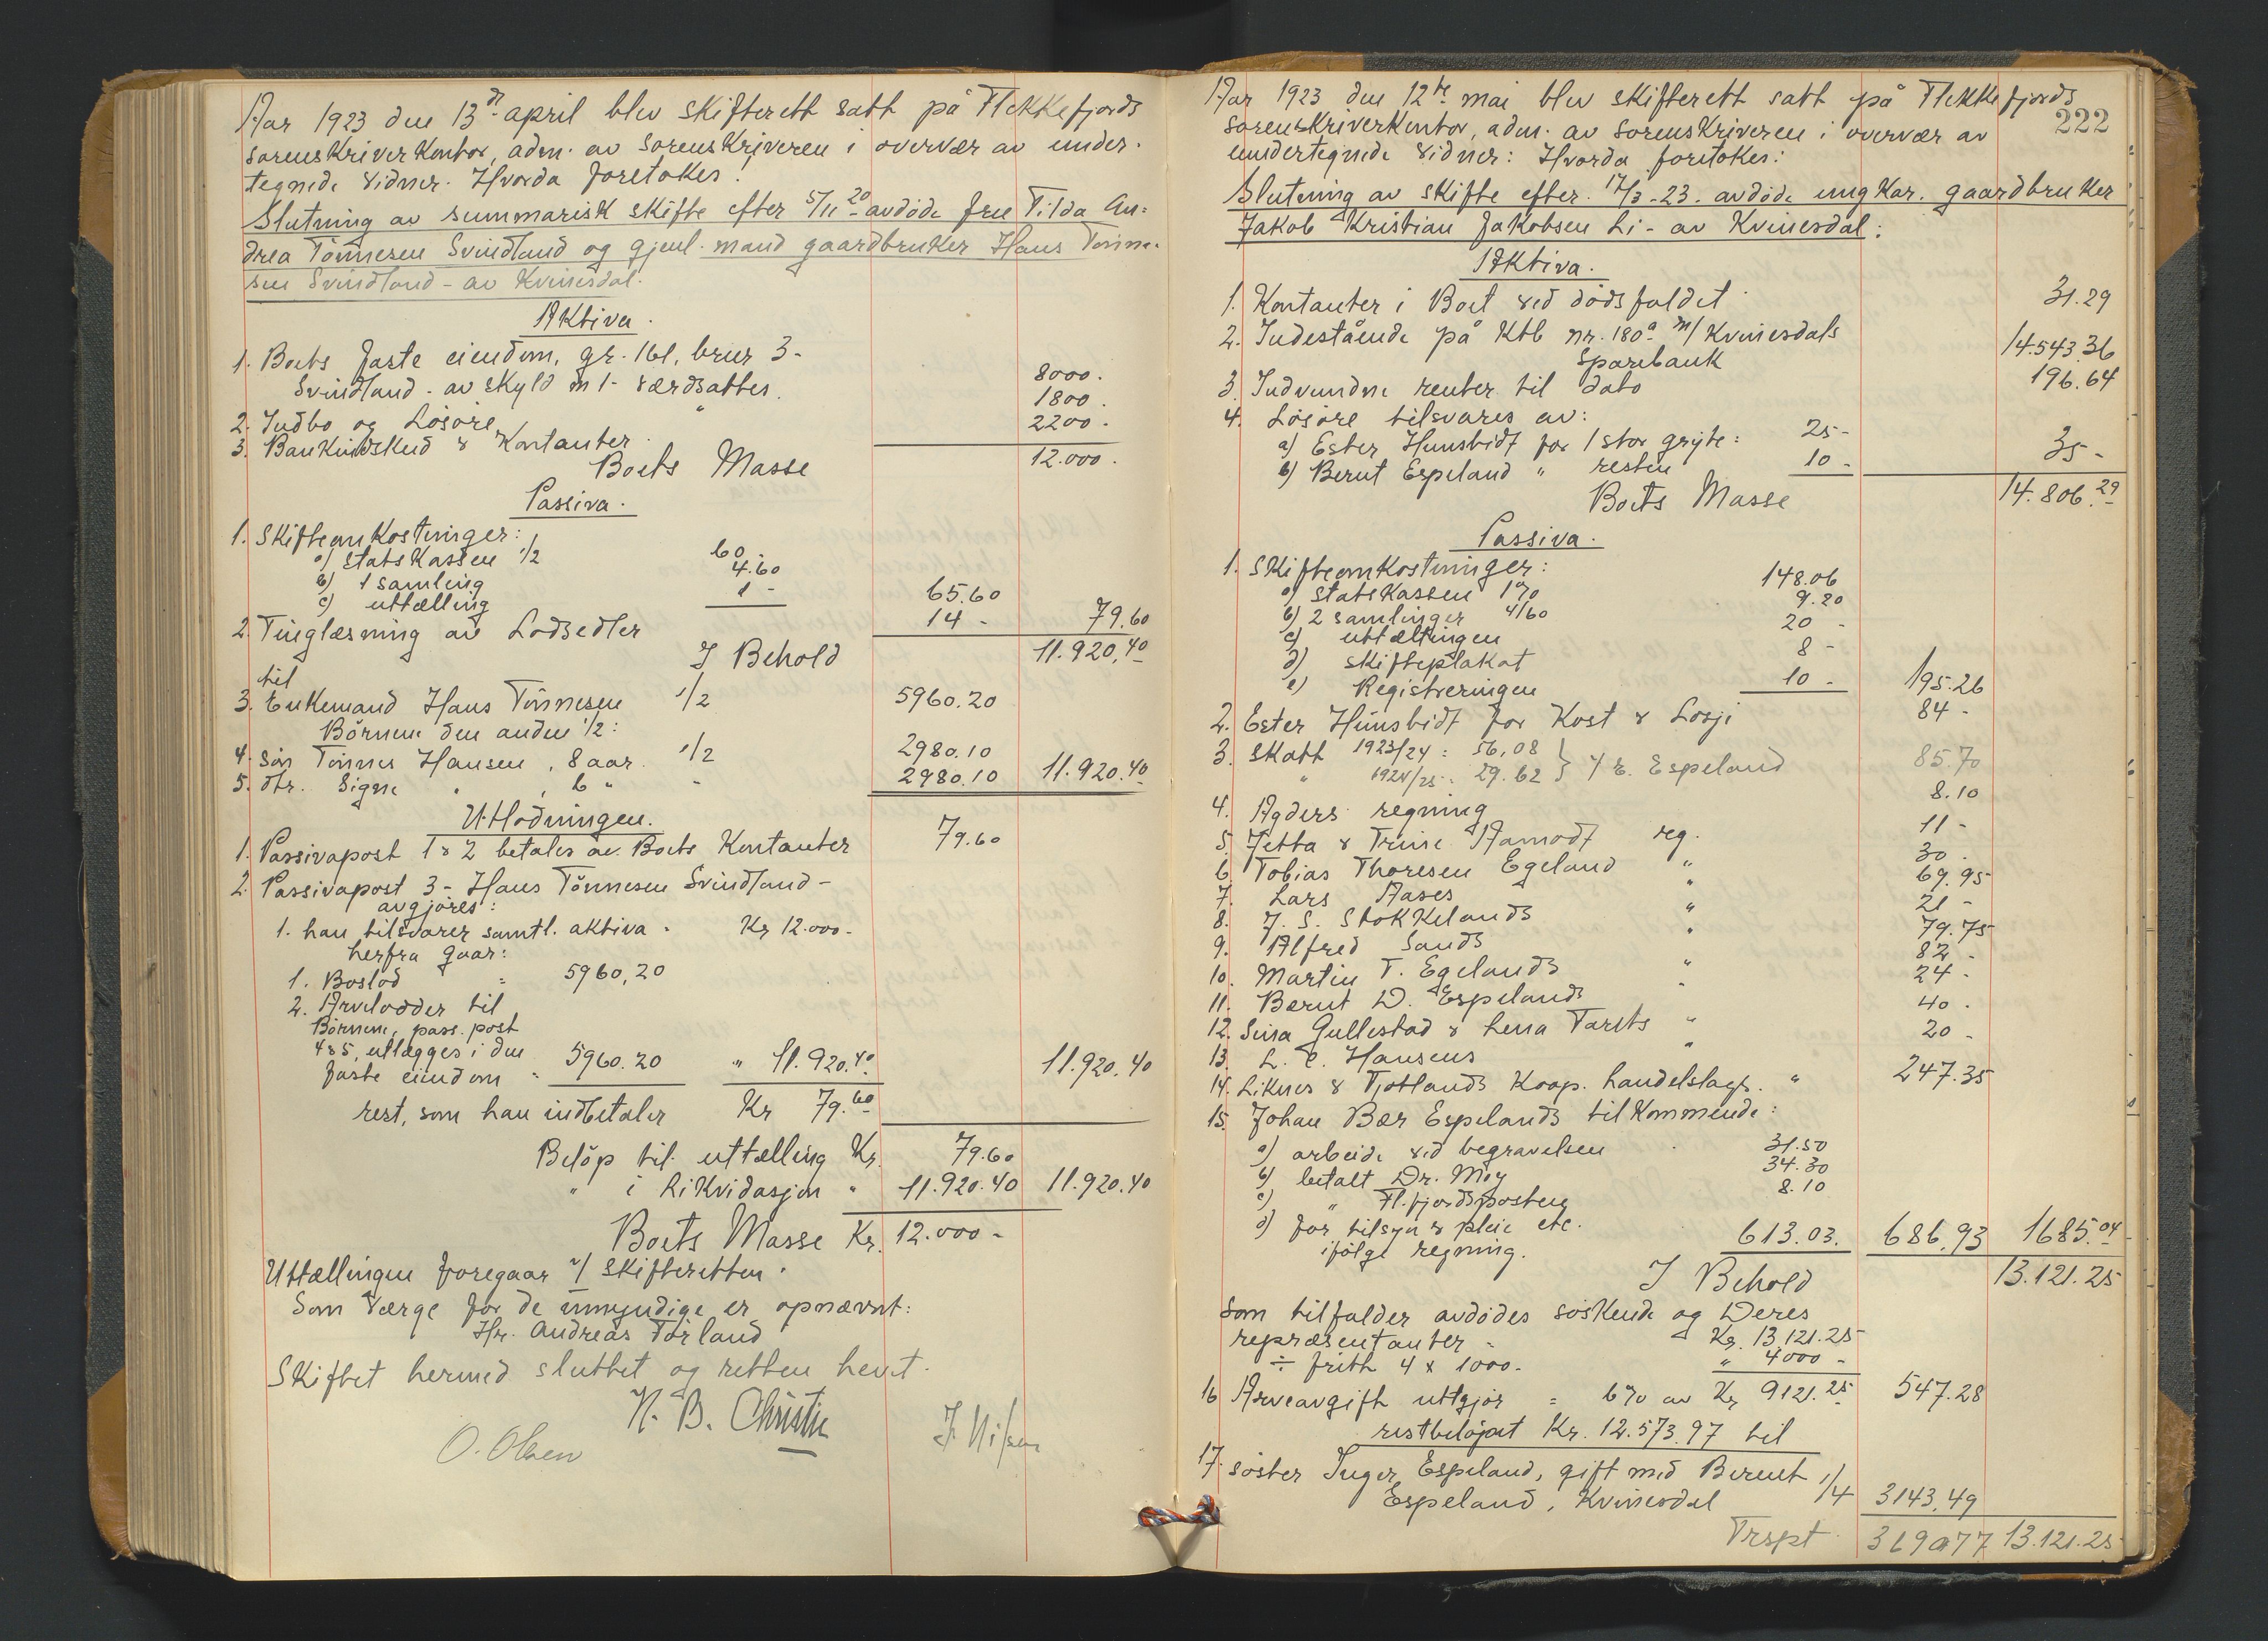 Aar 1923 den 13de april blev skifterett satt på Flekkefjords
sorenskriverkontor, adm. av sorenskriveren i overvær av under-
tegnede vidner. Hvorda foretokes:
Slutning av summarisk skifte efter 5/11 20 avdøde fru Tilda An=
drea Tönnesen Svindland og gjenl. mand gaardbruker Hans Tönne-
sen Svindland - av Kvinesdal.
Aktiva.
1. Boets faste eiendom, gr. 161, brnr 3-
Svindland - av skyld m 1- værdsattes. 8000.
2. Indbo og Løsøre " 1800.
3. Bankindskud & Kontanter. 2200.
Boets Masse 12.000.
Passiva.
1. Skifteomkostninger:
a) statskassen 1/2 60.-
b) 1 samling 4.60
c) uttælling 1 - 65.60
2. Tinglæsning av Lodsedler 14 - 79.60
I Behold 11.920,40
til
3. Enkemand Hans Tönnesen 1/2 5960.20
Börnene den anden 1/2:
4. Søn Tönnes Hansen, 8 aar. 1/2 2980.10
5. dtr. Signe " , 6 " - 2980.10 11.920.40
Utlodningen.
1. Passivapost 1 & 2 betales av Boets Kontanter 79.60
2. Passivapost 3 - Hans Tönnesen Svindland -
avgjøres:
1. han tilsvarer samtl. aktiva = Kr 12.000-
herfra gaar:
1. Boslod = 5960,20
2. Arvelodder til
Börnene, pass. post
4&5, utlægges i den
faste eiendom " 5960.20 " 11.920.40 11.920.40
rest, som han indbetaler Kr 79.60
Beløp til uttælling Kr. 79.60
" i Likvidasjon " 11.920.40 11.920.40
Boets Masse Kr. 12.000-
Uttællingen foregaar v/ skifteretten.
Som værge for de umyndige er opnævnt:
Hr. Andreas Törland
Skiftet hermed sluttet og retten hevet.
N. B. Christie
O. Olsen J. Nilsen
222
Aar 1923 den 12te mai blev skifterett satt på Flekkefjords
sorenskriverkontor, adm. av sorenskriveren i overvær av
undertegnede vidner: Hvorda foretokes:
Slutning av skifte efter 17/3-23. avdøde ungkar. gaardbruker
Jakob Kristian Jakobsen Li - av Kvinesdal:
Aktiva.
1. Kontanter i Boet ved dødsfaldet. 31.29
2. Indestående på Ktb nr. 180a m/ Kvinesdals
Sparebank 14.543.36
3. Indvundne renter til dato 196.64
4. Løsøre tilsvares av:
a) Ester Hunsbidt for 1 stor gryte: 25-
b) Berut Espeland " resten 10- 35-
Boets Masse 14.806.29
Passiva.
1. Skifteomkostninger:
a) statskassen 1% 148.06
b) 2 samlinger 4/60 9.20
c) uttællingen 20 -
d) skifteplakat 8 -
e) Registreringen 10 - 195.26
2. Ester Hunsbidt for Kost & Losji 84 -
3. Skatt 1923/24: 56,08
" 1924/25: 29.62 } v/ B. Espeland 85.70
4. Agders regning 8.10
5. Jetta & Trine Aamodt reg. 11 -
6. Tobias Thoresen Egeland " 30.
7. Lars Aases " 69.95
8. J. S. Stokkelands " 21 -
9. Alfred Sands " 79.75
10. Martin T. Egelands " 82 -
11. Bernt D. Espelands " 24 -
12. Sina Gullestad & Lena Tarets " 40 -
13. L. C. Hansens " 20 -
14. Liknes & Tjotlands Koop. handelslags. " 247.35
15. Johan Bær Espelands tilkommende:
a) arbeide ved begravelsen 31.50
b) betalt Dr. Moy 34.30
c) " Fl.fjordsposten 8.10
d) for tilsyn & pleie etc.
ifølge regning. 613.03. 686,93 1685.04
I Behold 13.121.25
Som tilfalder avdødes søskende og Deres
repræsentanter = Kr. 13,121.25
÷ fritt 4 x 1000. " 4000 -
16 Arveavgift utgjør = 6% av Kr 9121.25 547.28
restbeløpet Kr. 12.573.97 til
17. søster Inger Espeland, gift med Berent
Espeland, Kvinesdal 1/4 3143.49
Trspt. 3690.77 13.121.25